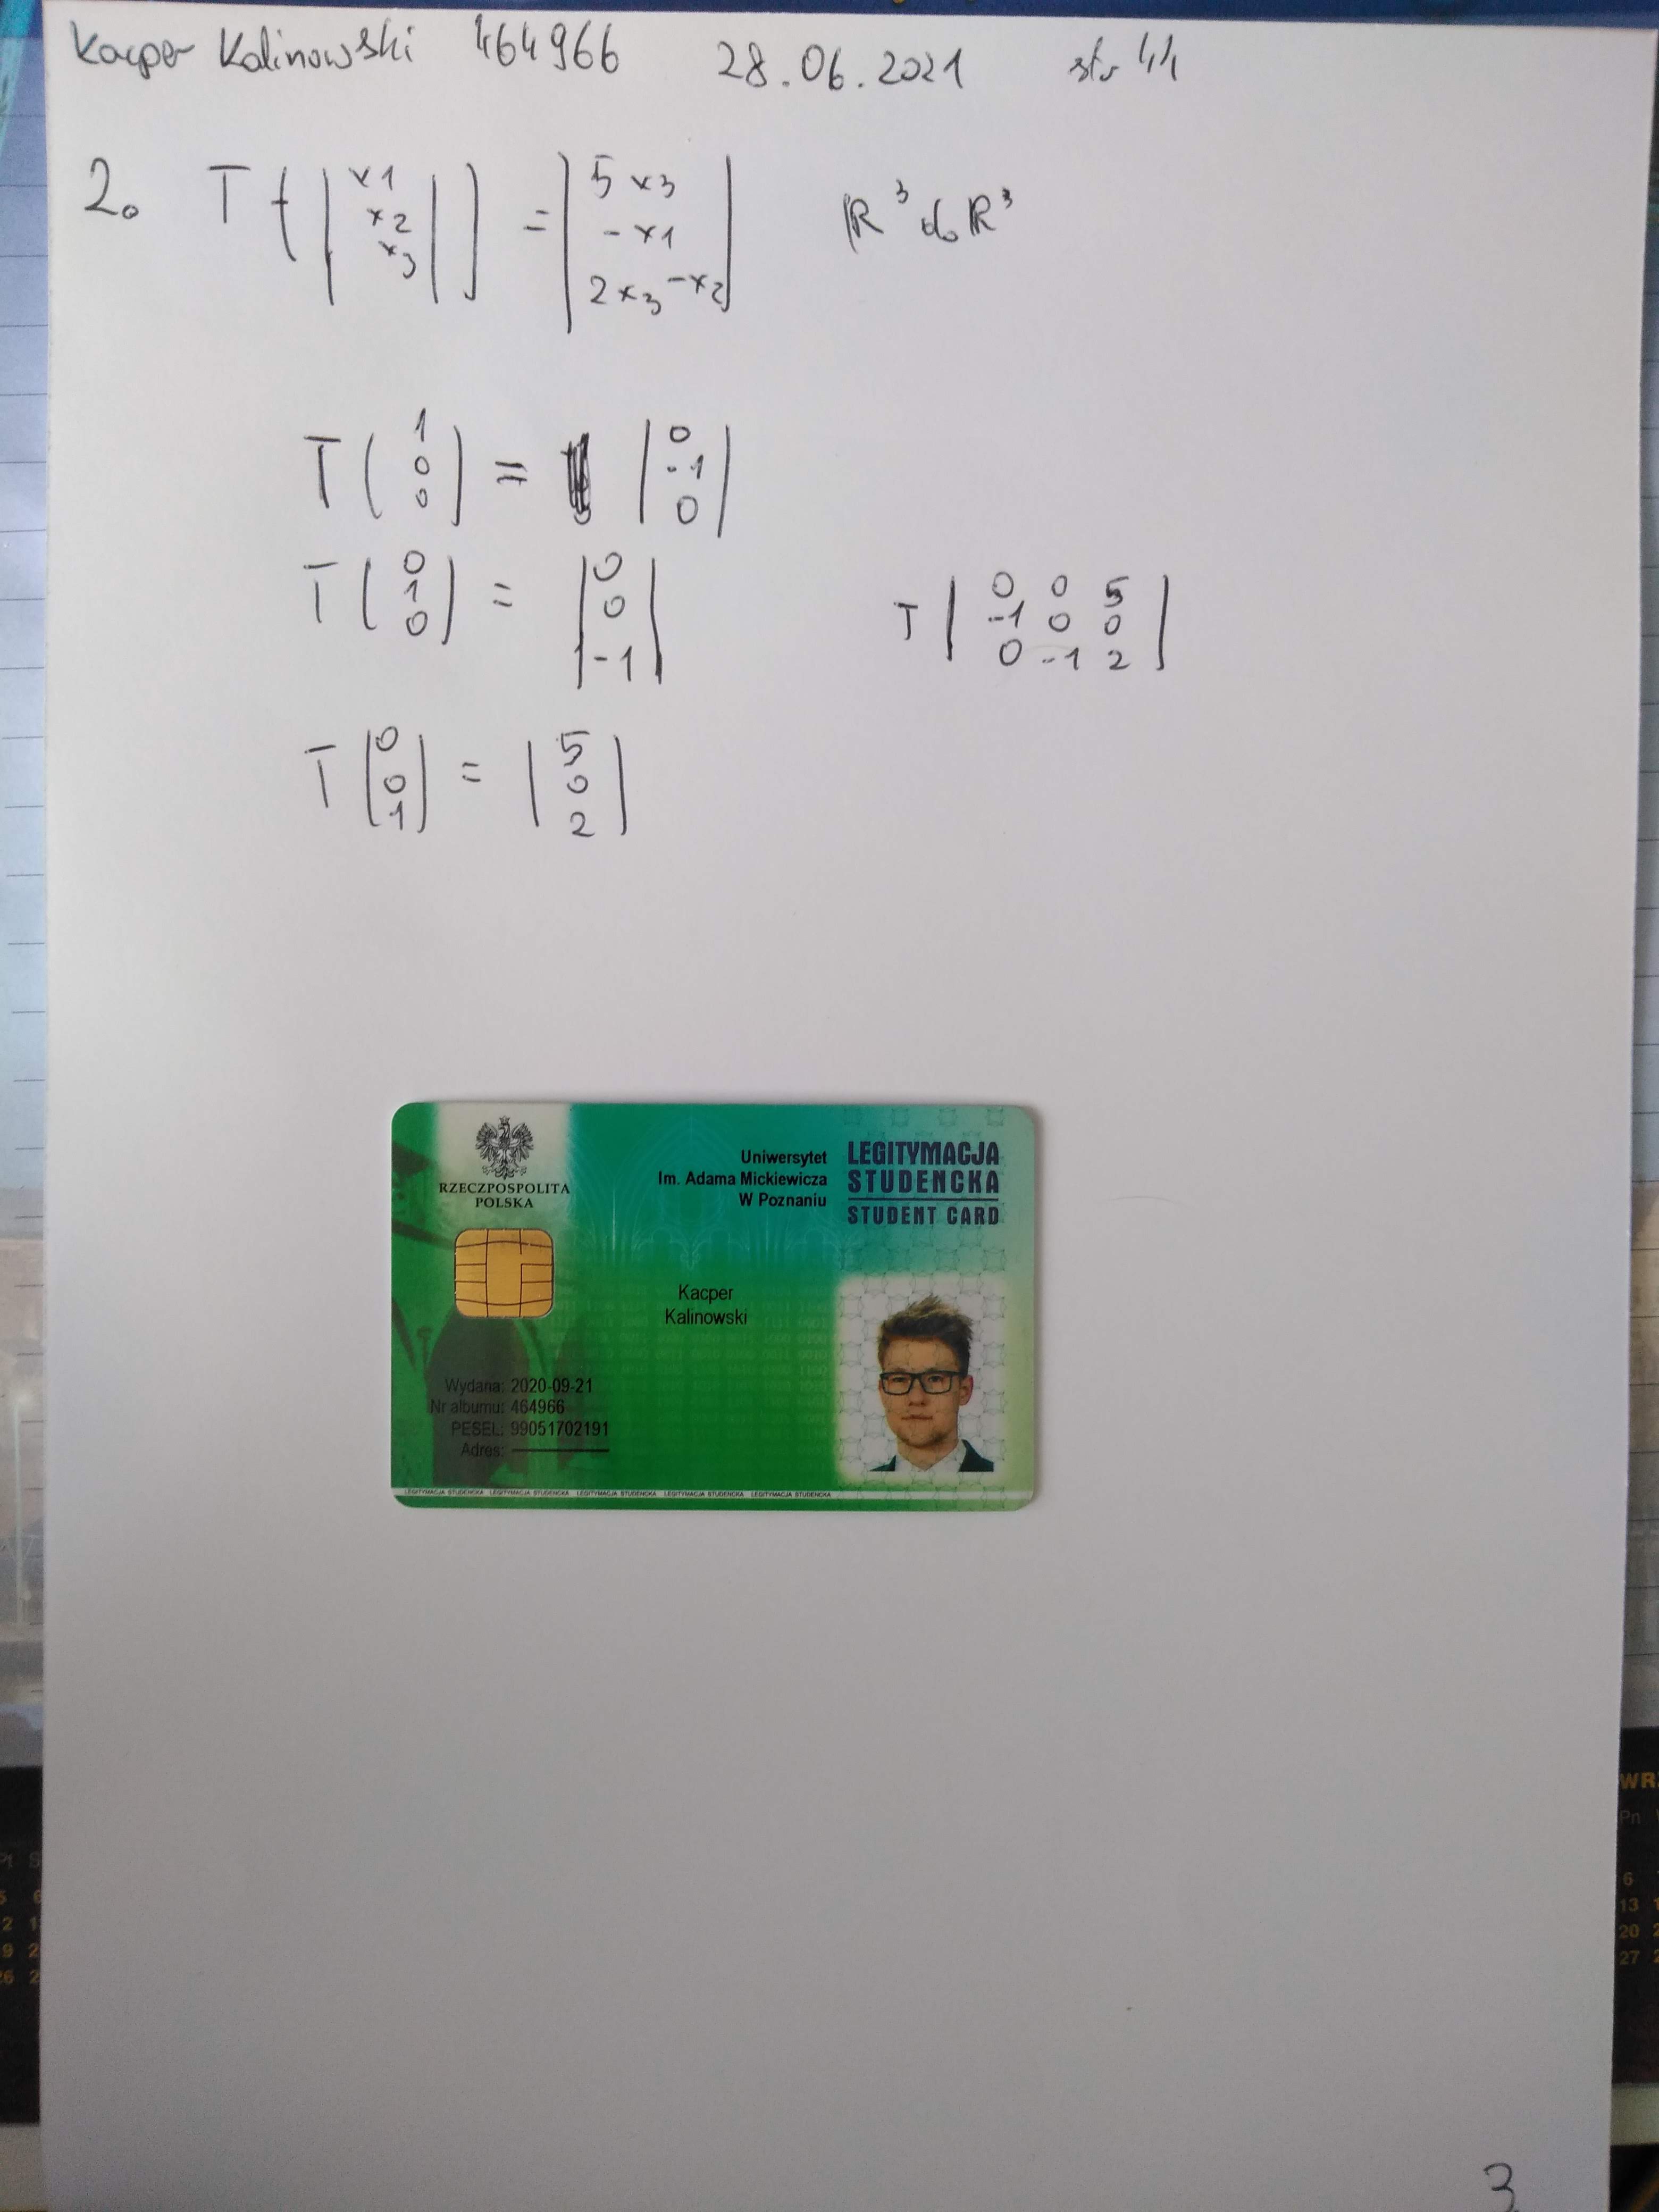 Kacper Kalinowski 464966 28.06.2021 str 4
2. T ( | x1 x2 x3 | ) = | 5x3 -x1 2x3 -x2 | R³ do R³
T ( 1 0 0 ) = | 0 -1 0 |
T ( 0 1 0 ) = | 0 0 -1 |
T | 0 0 5 |
-1 0 0
0 -1 2
T | 0 0 1 | = | 5 0 2 |
RZECZPOSPOLITA
POLSKA
Uniwersytet
Im. Adama Mickiewicza
W Poznaniu
LEGITYMACJA
STUDENCKA
STUDENT CARD
Kacper
Kalinowski
Wydana: 2020-09-21
Nr albumu: 464966
PESEL: 99051702191
Adres:
LEGITYMACJA STUDENCKA LEGITYMACJA STUDENCKA LEGITYMACJA STUDENCKA LEGITYMACJA STUDENCKA LEGITYMACJA STUDENCKA
WRZ
Pn
6
13
20
27
3